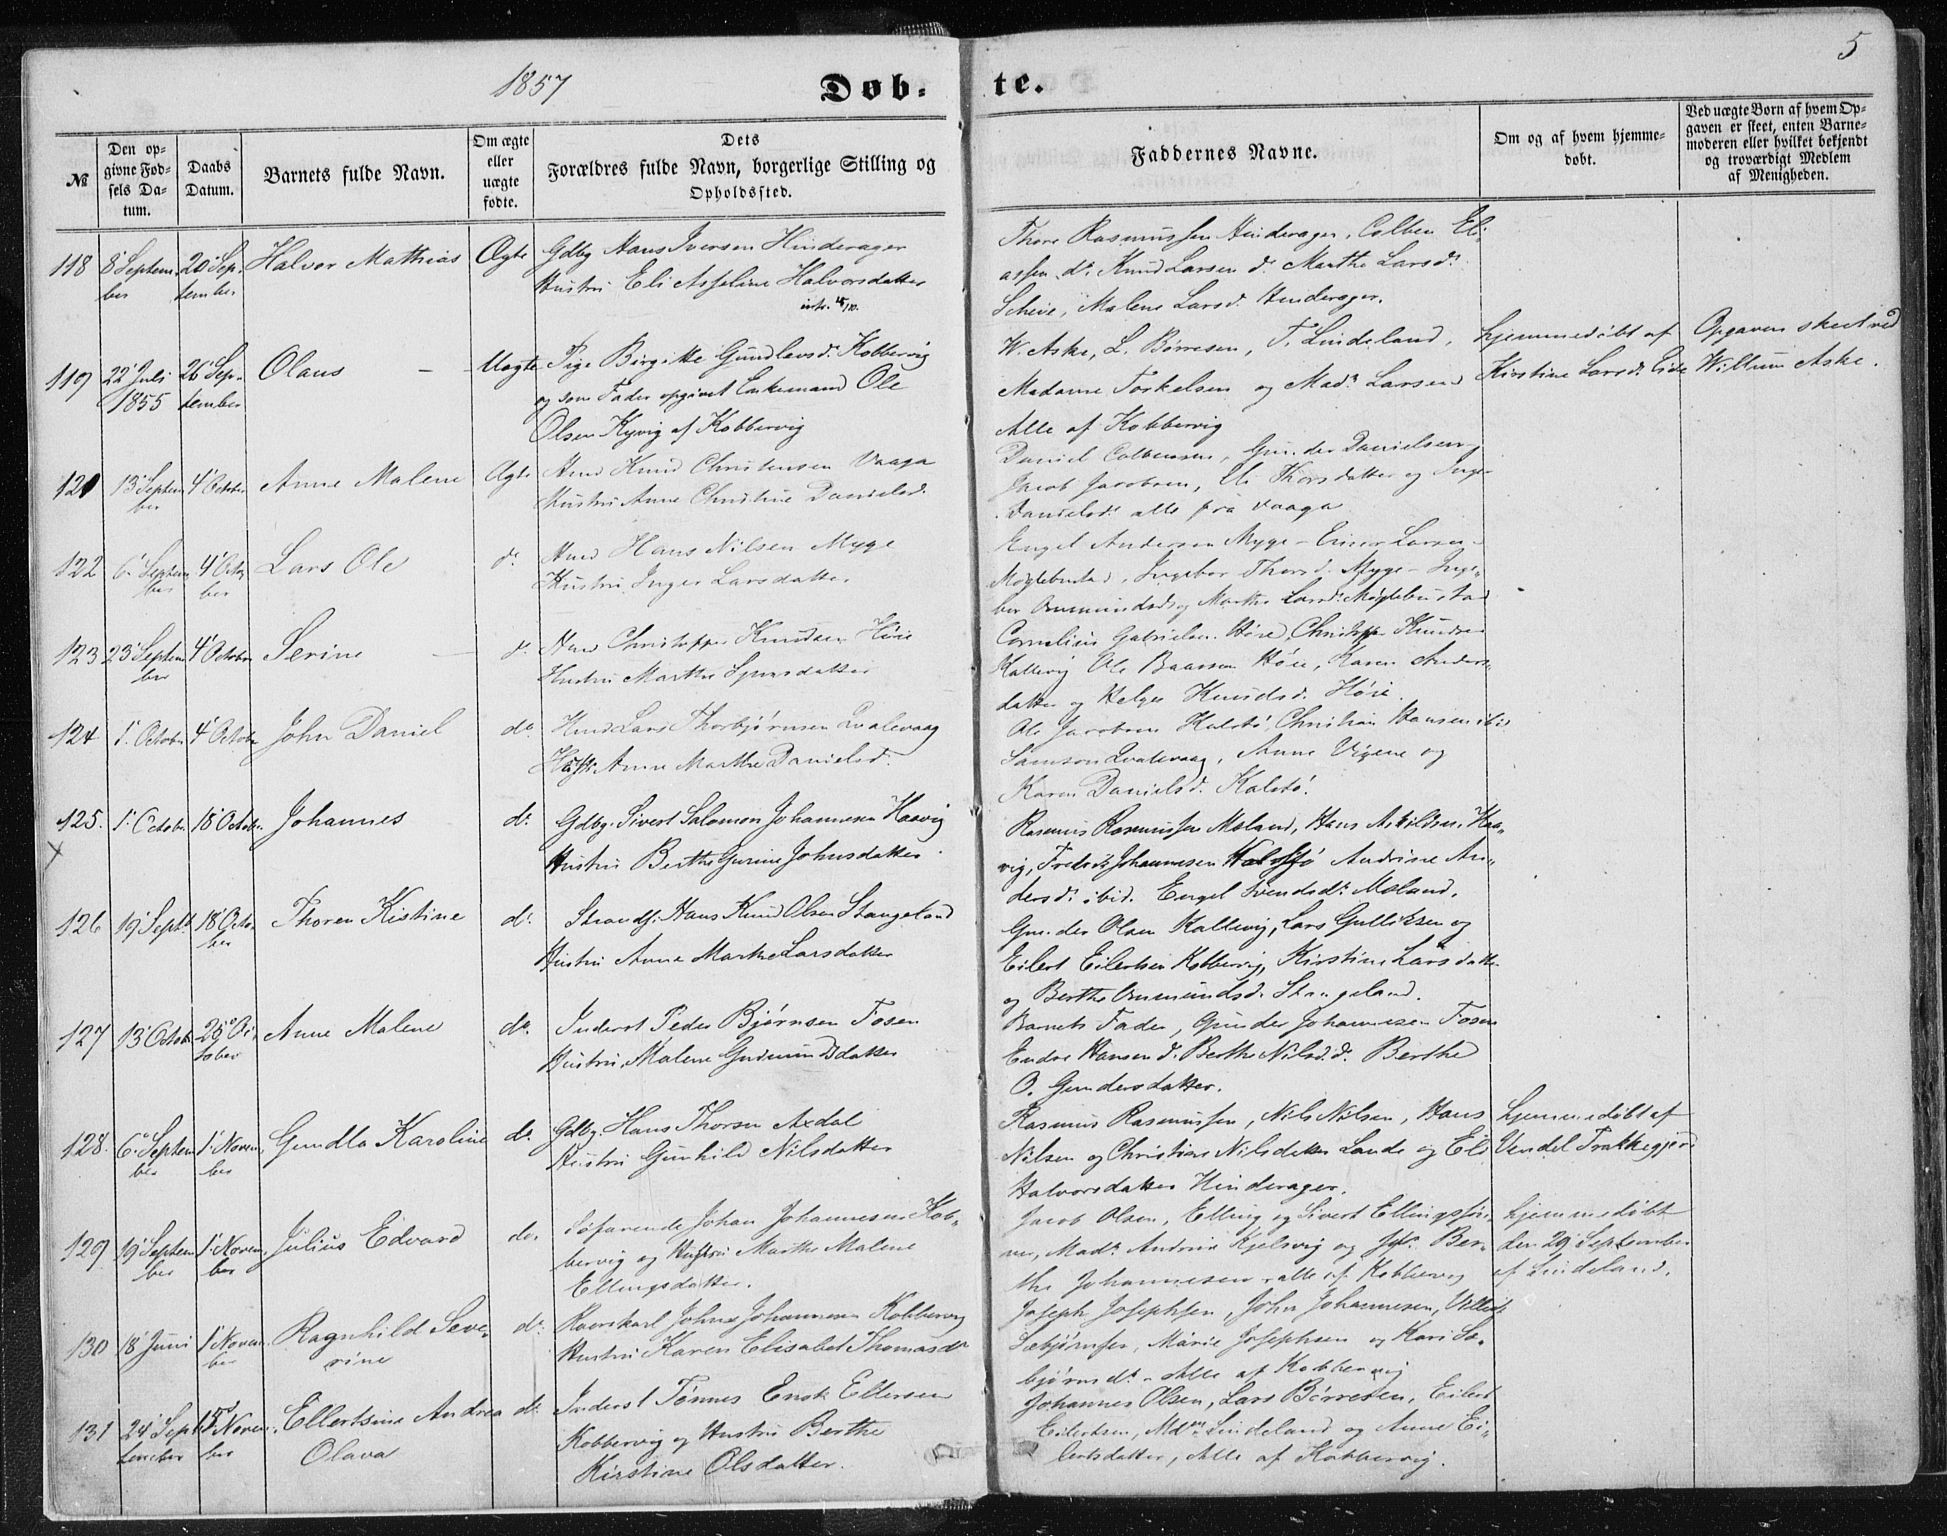 1857
Døb-
te.
5
№
Den op-
givne Fød-
sels Da-
tum.
Daabs
Datum.
Barnets fulde Navn.
Om ægte
eller
uægte
fødte.
Dets
Forældres fulde Navn, borgerlige Stilling og
Opholdssted.
Faddernes Navne.
Om og af hvem hjemme-
døbt.
Ved uægte Børn af hvem Op-
gaven er skeet, enten Barne-
moderen eller hvilket bekjendt
og troværdigt Medlem
af Menigheden.
118 8 Septem- 20 Sep- Halvor Mathias Ægte Gdbg Hans Iversen Hinderager
ber tember Hustru Eli Asseline Halvorsdatter
Thore Rasmussen Hinderager, Colben Eli-
assen do Knud Larsen do Marthe Larsd.
Scheie, Malene Larsd. Hinderager.
119 22 Juli 26 Sep- Olaus Uægte Pige Birgitte Gundlevsd. Kobbervig
1855 tember og som Fader opgivet Enkemand Ole
Olsen Kyvig af Kobbervig
W. Aske, L. Børresen, T. Lindeland,
Madame Torkelsen og Made Larsen
Alle af Kobbervig
hjemmedøbt af
Kirstine Larsd. Eide
Opgaven skeet ved
Willum Aske.
121 13 Septem- 4 October Anne Malene Ægte Hmd Knud Christensen Vaaga
ber Hustru Anne Christine Danielsd.
Daniel Colbensen, Gunder Danielsen,
Jacob Jacobsen, Eli Thorsdatter og Inge
Danielsd. alle fra Vaaga
122 6 Septem- 4 Octo- Lars Ole do Hmd Hans Nilsen Myge
ber ber Hustru Inger Larsdatter
Engel Andersen Myge - Einar Larsen
Møglebustad, Ingebor Thorsd. Myge - Inge-
bor Omundsd. og Marthe Larsd. Møglebustad
123 23 Septem- 4 October Serine do Hmd Christopher Knudsen Høie
ber Hustru Marthe
Cornelius Gabrielsen Høie, Christopher Knudsen
Kallevig Ole Baarsen Høie, Karen Anders-
datter og Helge Knudsd. Høie.
124 1 October 4 October John Daniel do Hmd Lars Thorbjørnsen Qvalevaag
Hustru Anne Marthe Danielsd.
Ole Jacobsen Kalstø, Christian Hansen ibid
Samson Qvalevaag, Anne Vigene og
Karen Danielsd. Kalstø.
125. 1 October 18 October Johannes do Gdbg. Sivert Salomon Johannesen Haavig
Hustru Berthe Gurine Johnsdatter
Rasmus Rasmussen Moland, Hans Askildsen Haa-
vig, Fredrik Johannesen Andrine An-
dersd. ibid. Engel Svendsd. Moland.
126 19 Sept 18 Octo- Thoren Kistine do Strands. Hans Knud Olsen Stangeland
ber Hustru Anne Marthe Larsdatter
Gunder Olsen Kallevig, Lars Gulliksen og
Eilert Eilertsen Kobbervig, Kirstine Larsdatter
og Berthe Omundsd. Stangeland.
127 13 Octob. 25 Oc- Anne Malene do Inderst Peder Bjørnsen Fosen
tober Hustru Malene Gudmundsdatter
Barnets Fader, Gunder Johannesen Fosen
Endre Hansen do Berthe Nilsd. do Berthe
O. Gundersdatter.
128. 6 Septem- 1 Novem- Gundla Karoline do Gdbg. Hans Thorsen Axdal
ber ber Hustru Gunhild Nilsdatter
Rasmus Rasmussen, Nils Nilsen, Hans
Nilsen og Christian Nilsdatter Lande og Eli
Halvorsdatter Hinderager.
hjemmedøbt af
Vendel Trakkegjerd
129 19 Septem- 1 Novem- Julius Edvard do Søfarende Johan Johannesen Kob-
ber ber bervig og Hustru Marthe Malene
Ellingsdatter.
Jacob Olsen, Elling og Sivert Ellingssøn-
ner, Made Andrine Kjelsvig og Ber-
the Johannesen, alle af Kobbervig
hjemmedøbt
den 29 September
af Lindeland.
130 18 Juni 1 Novem- Ragnhild Seve- do Johns Johannesen Kobbervig
ber rine Hustru Karen Elisabet Thomasdr
Joseph Josephsen, John Johannesen, Villads
Sæbjørnsen, Marie Josephsen og Kari Sæ-
bjørnsdr. Alle af Kobbervig
131 24 Sept 15 Novem- Ellertsine Andrea do Inderst Tønnes Enok Ellersen
tember ber Olava Kobbervig og Hustru Berthe
Kirstine Olsdatter.
Johannes Olsen, Lars Børresen, Eilert
Eilertsen, Mdm Lindeland og Anne Ei-
lertsdatter, Alle af Kobbervig.